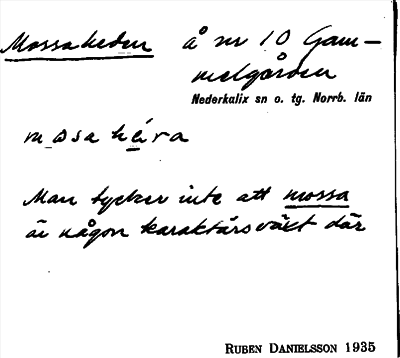 Mossaheden å nr 10 Gam-
melgården
Nederkalix sn o. tg. Norrb. län
mosahéra
Man tycker inte att mossa
är någon karaktärsväxt där
RUBEN DANIELSSON 1935